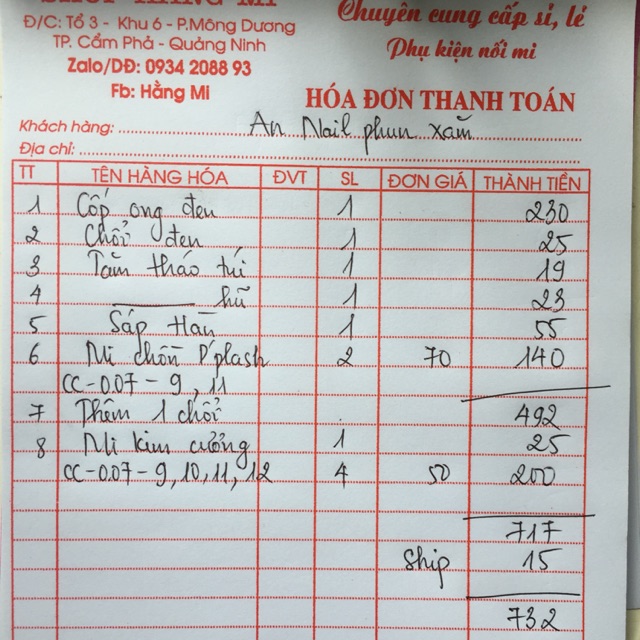 SHOP HẰNG MI
Đ/C: Tổ 3 - Khu 6 - P.Mông Dương
TP. Cẩm Phả - Quảng Ninh
Zalo/DĐ: 0934 2088 93
Fb: Hằng Mi
Chuyên cung cấp sỉ, lẻ
Phụ kiện nối mi
HÓA ĐƠN THANH TOÁN
Khách hàng: An Nail phun xăm
Địa chỉ:
TT TÊN HÀNG HÓA ĐVT SL ĐƠN GIÁ THÀNH TIỀN
1 Cốp ong đen 1 230
2 Chổi đen 1 25
3 Tăm tháo túi 1 19
4 hũ 1 23
5 Sáp Hàn 1 55
6 Mi chồn P'plash 2 70 140
CC-0.07-9, 11
492
7 Thêm 1 chổi 1 25
8 Mi kim cương
CC-0.07-9, 10, 11, 12 4 50 200
717
Ship 15
732